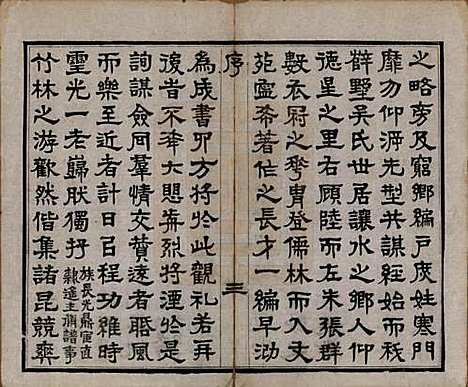 之略旁及窮鄉編戶庶姓寒門
靡勿仰溯先型共謀經始而我
辥墅吳氏世居讓水之鄉人仰
德星之里右顧陸而左朱張群
數衣尉之華冑登儒林而入文
苑寧希著作之長才一編早泐
序
三
為成書卯方將於此觀禮若再
後昔不奉大懼舜烈將湮於是
詢謀僉同羣情交贊遠者聞風
而樂至近者計日呂程功維時
靈光一老巋肰獨抒族長光鼎寅直隸進主脩譜事
竹林之游歡然偕集諸昆競爽